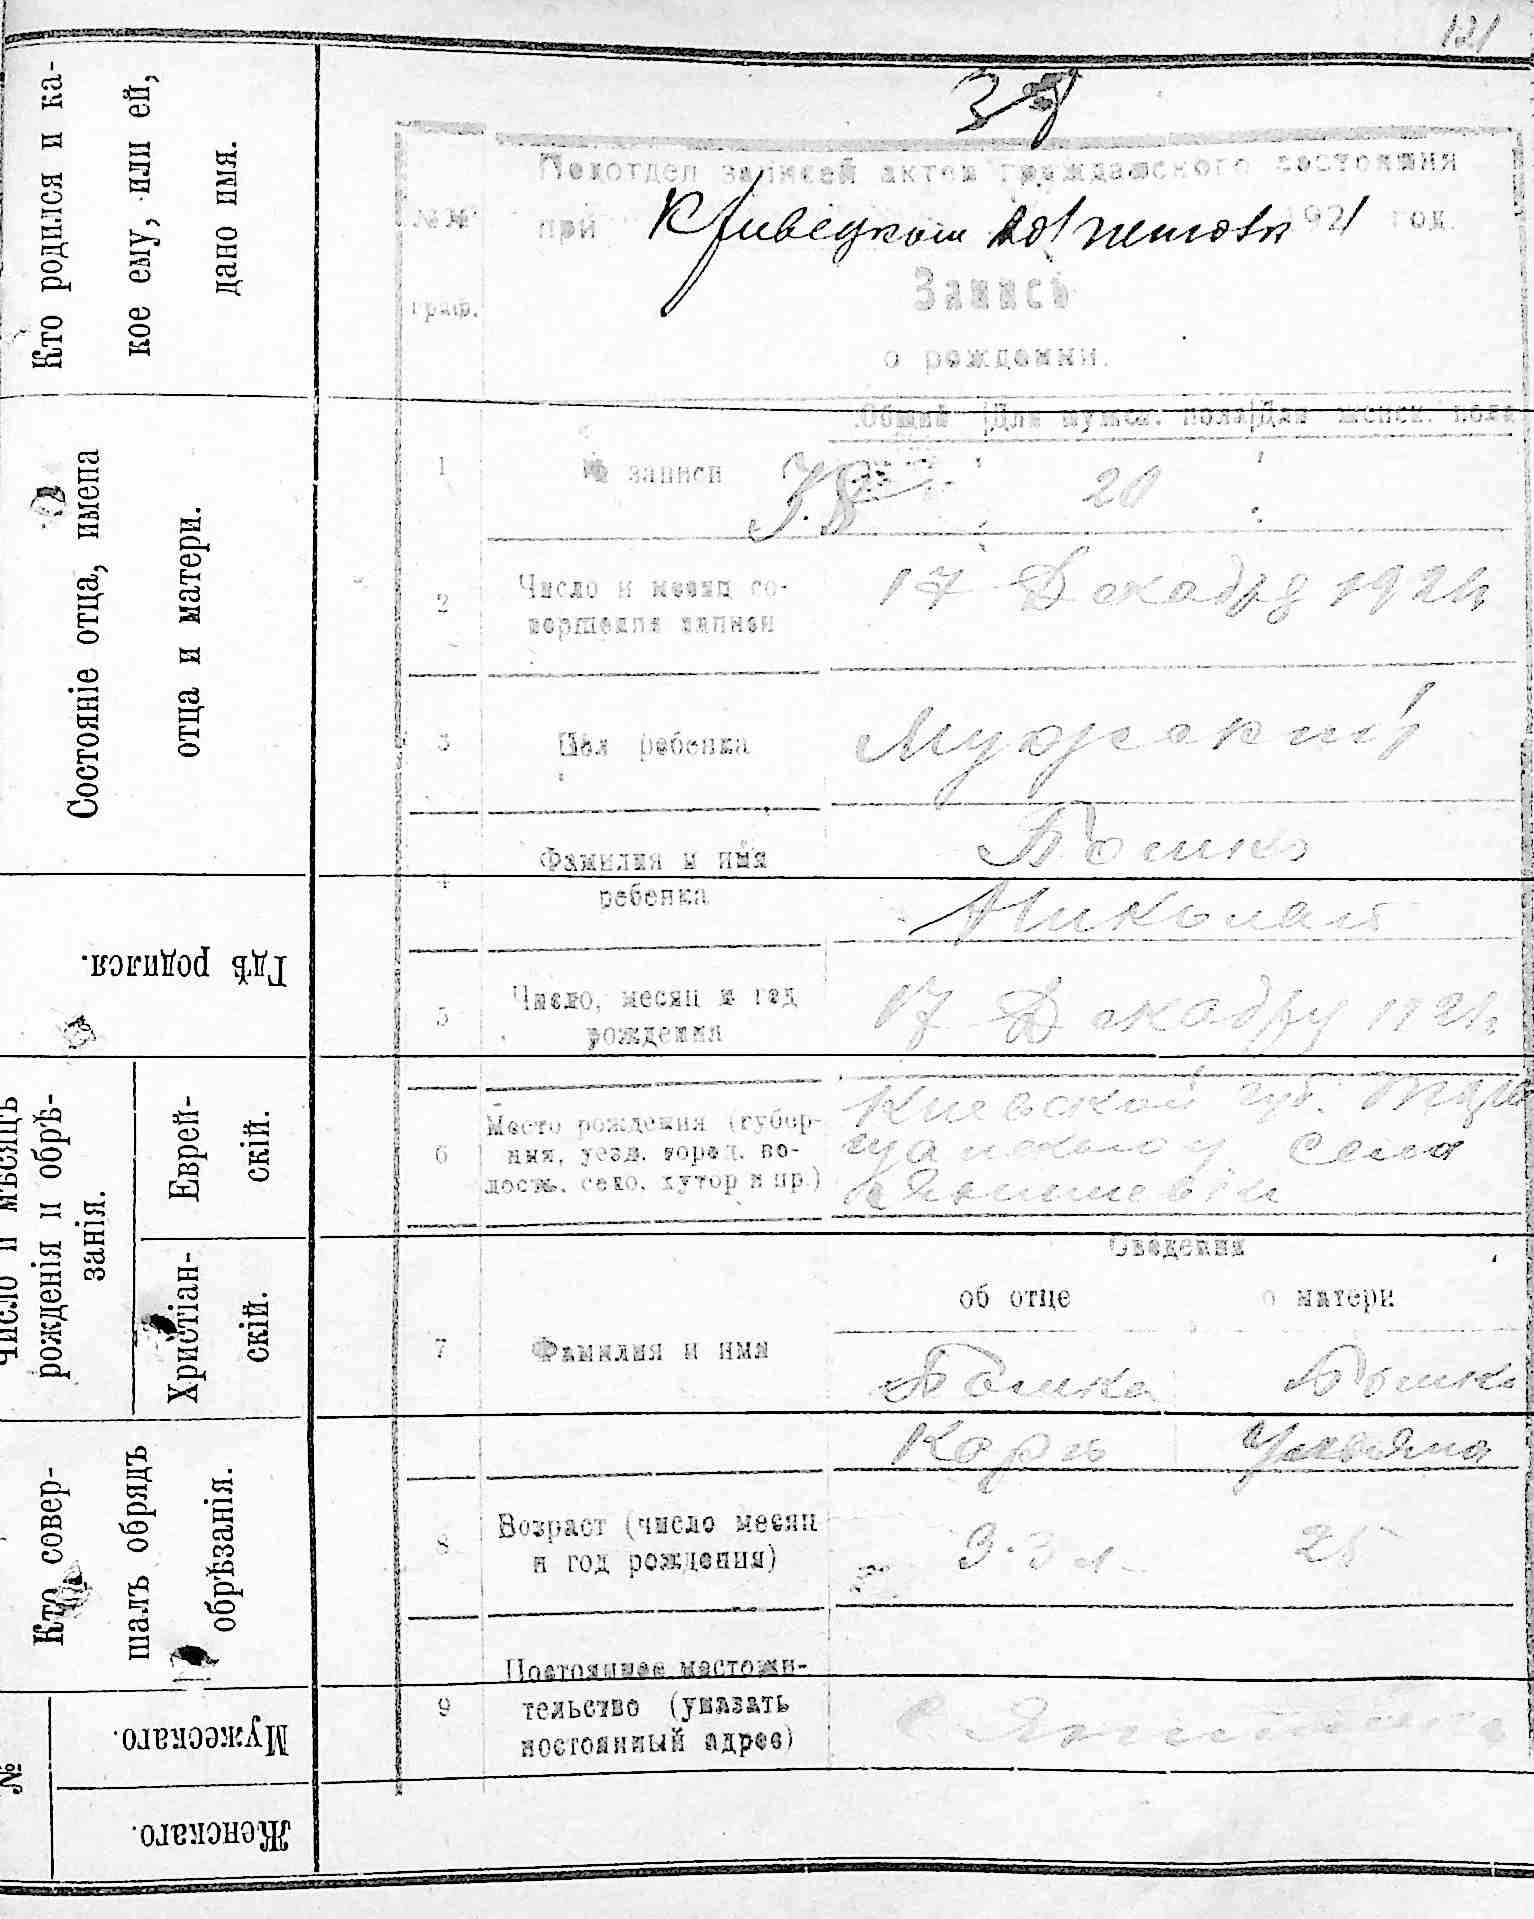 121
Кто родился и ка-
кое ему, или ей,
дано имя.
Состояніе отца, имена
отца и матери.
Гдѣ родился.
Число и мѣсяцъ
рожденія и обрѣ-
занія.
Еврей-
скій.
Христіан-
скій.
Кто совер-
шалъ обрядъ
обрѣзанія.
№
Мужескаго.
Женскаго.
Подотдел записей актов гражданского состояния
№№ при 1921 год.
граф.
Запись
о рождении.
Общий Для мужск. пола Для женск. пола
1 № записи 20
2 Число и месяц со-
вершения записи
17 Декабря 1921
3 Пол ребенка Мужский
4 Фамилия и имя
ребенка
Бошко
Николай
5 Число, месяц и год
рождения
17 Декабру 1921
6 Место рождения (губер-
ния, уезд, город, во-
лость, село, хутор и пр.)
Киевской губ.
село
Сведения
об отце о матери
7 Фамилия и имя
Бошко Бошко
Карп Ульяна
8 Возраст (число месяц
и год рождения)
33 л. 25
9 Постоянное местожи-
тельство (указать
постоянный адрес)
с